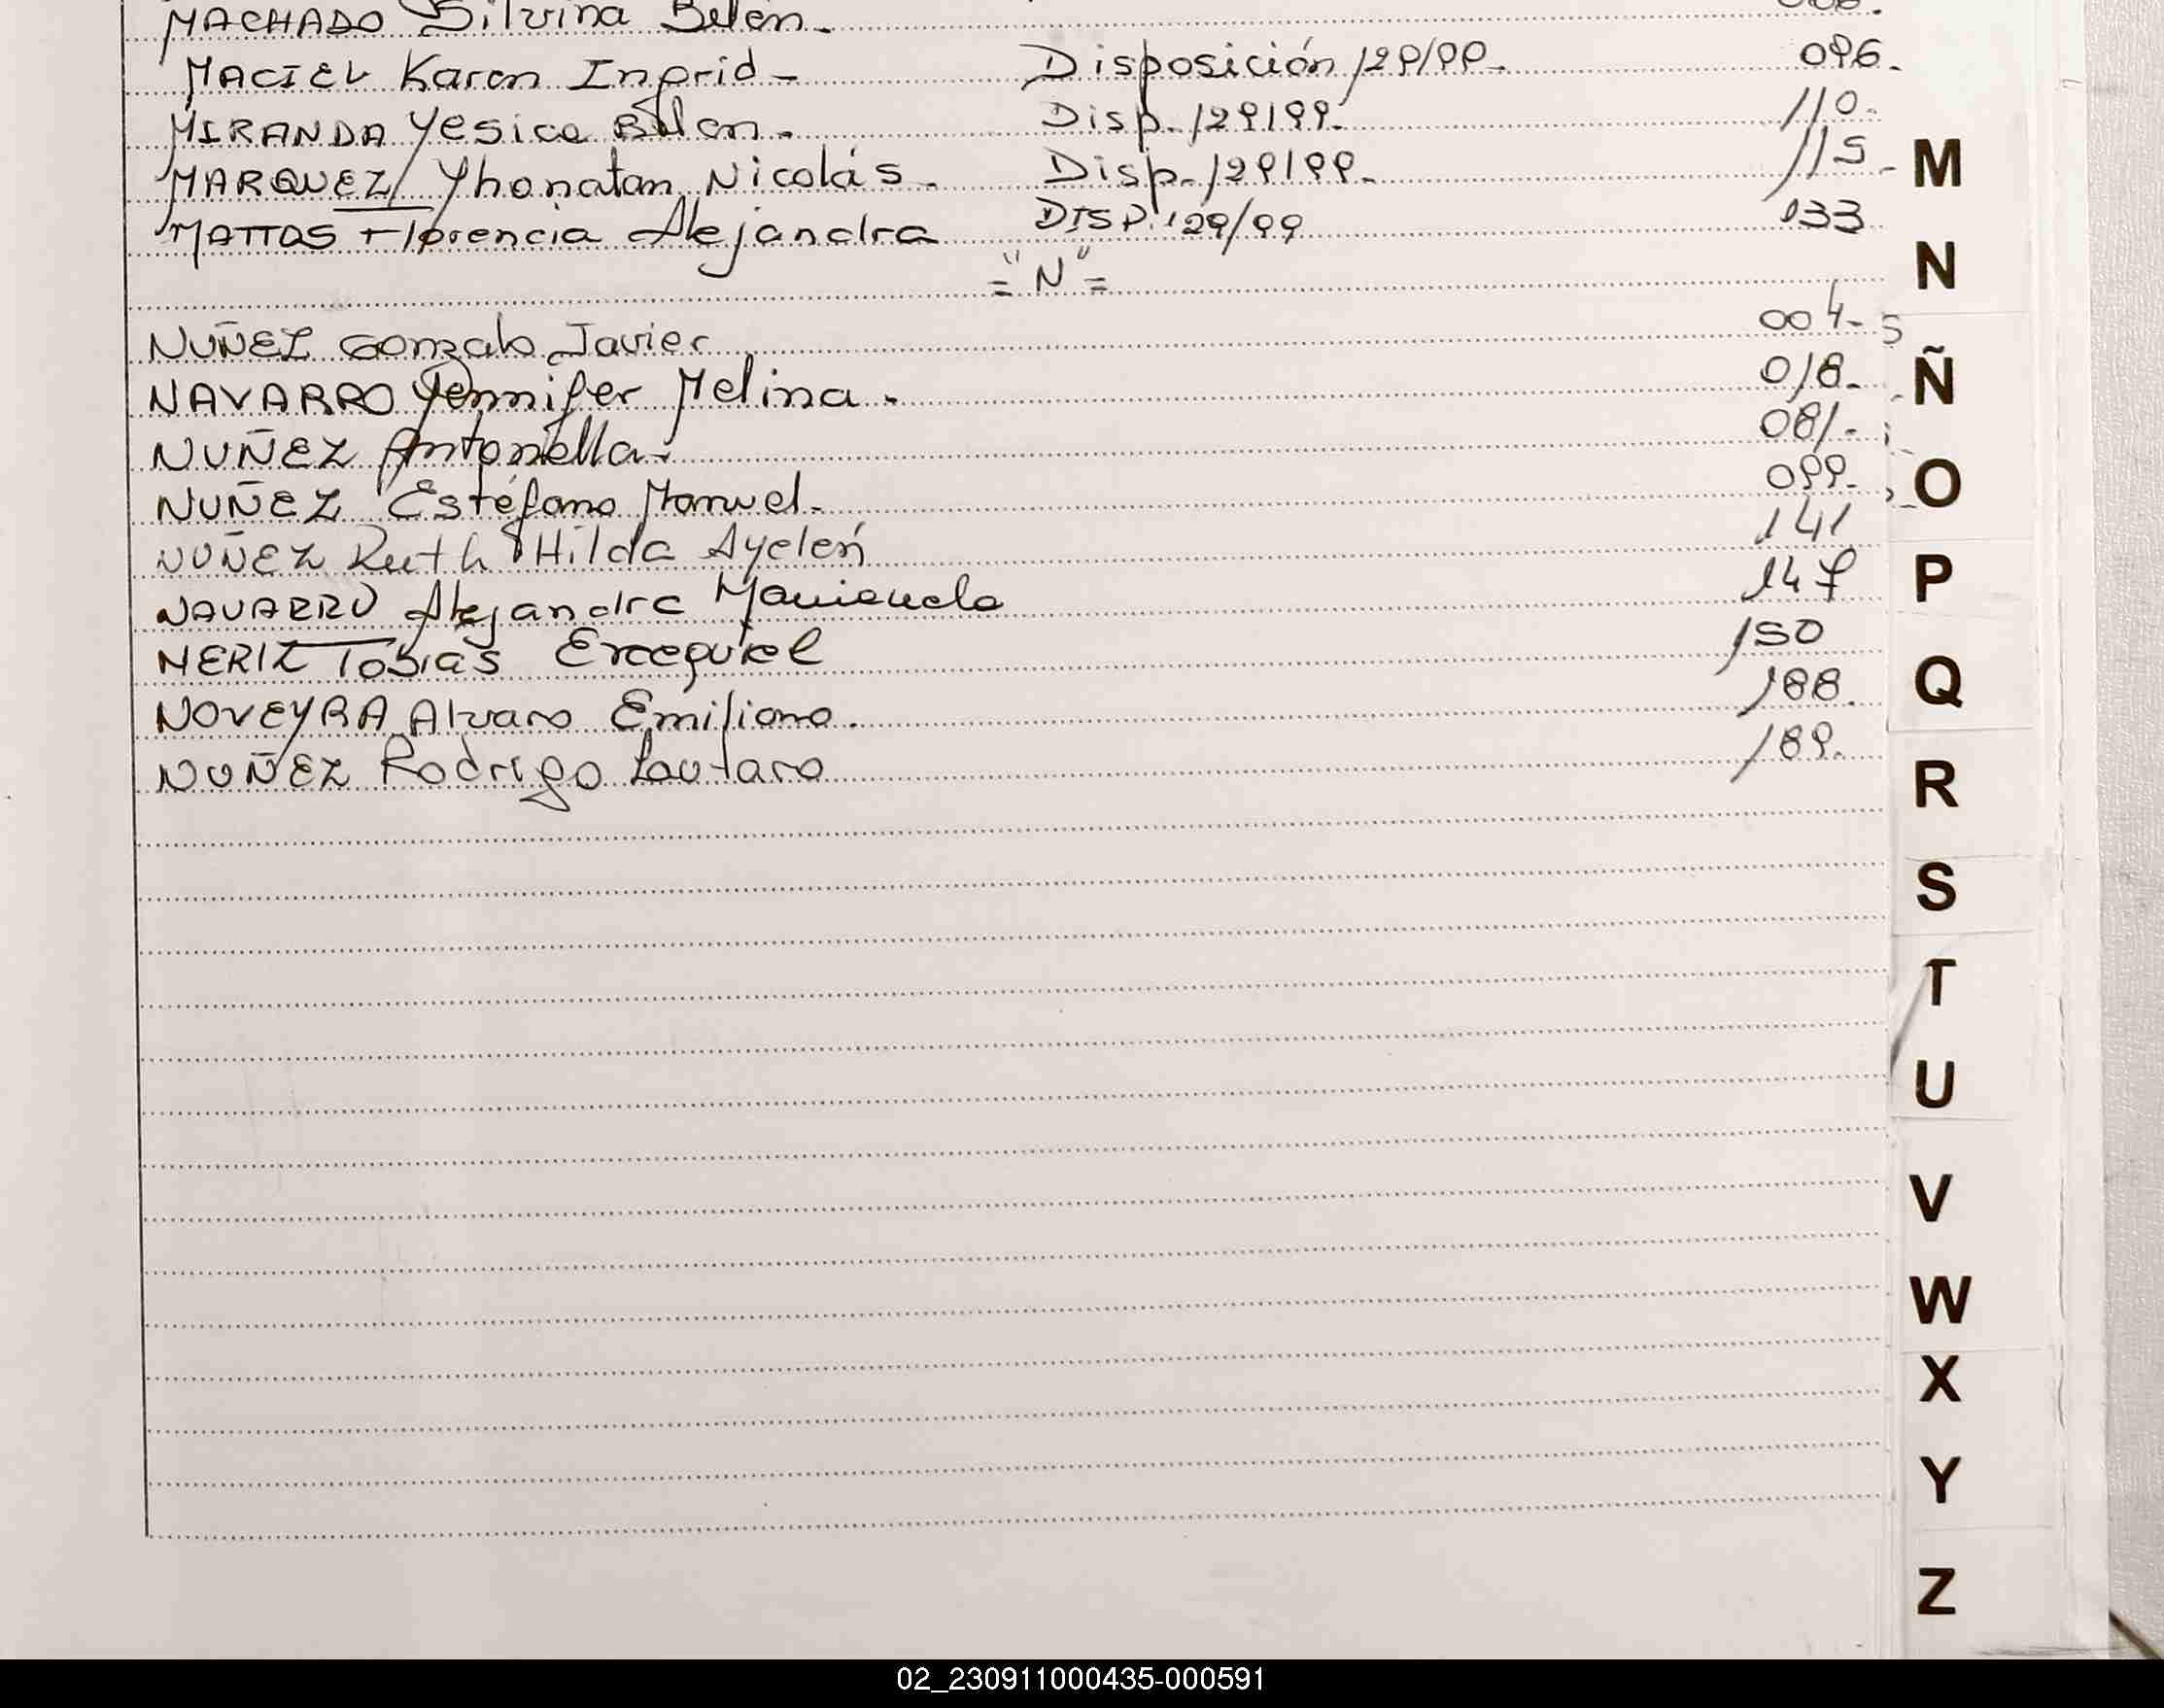 MACHADO Silvina Belén.
MACIEL Karen Ingrid - Disposición 129/99. 096.
MIRANDA Yesica Belen. Disp. 129/99. 110.
MARQUEZ Yhonatan Nicolás. Disp. 129/99. 115.
MATTOS Florencia Alejandra DISP. 129/99 133
="N"=
NUÑEZ Gonzalo Javier 004-
NAVARRO Yennifer Melina. 018.
NUÑEZ Antonella. 081.
NUÑEZ Estéfano Manuel. 099.
NUÑEZ Ruth Hilda Ayelén 141
NAVARRO Alejandra 147
NERIZ Tobias Exequiel 150
NOVEYRA Alvaro Emiliano. 188.
NUÑEZ Rodrigo Lautaro 189.
M
N
Ñ
O
P
Q
R
S
T
U
V
W
X
Y
Z
02_230911000435-000591